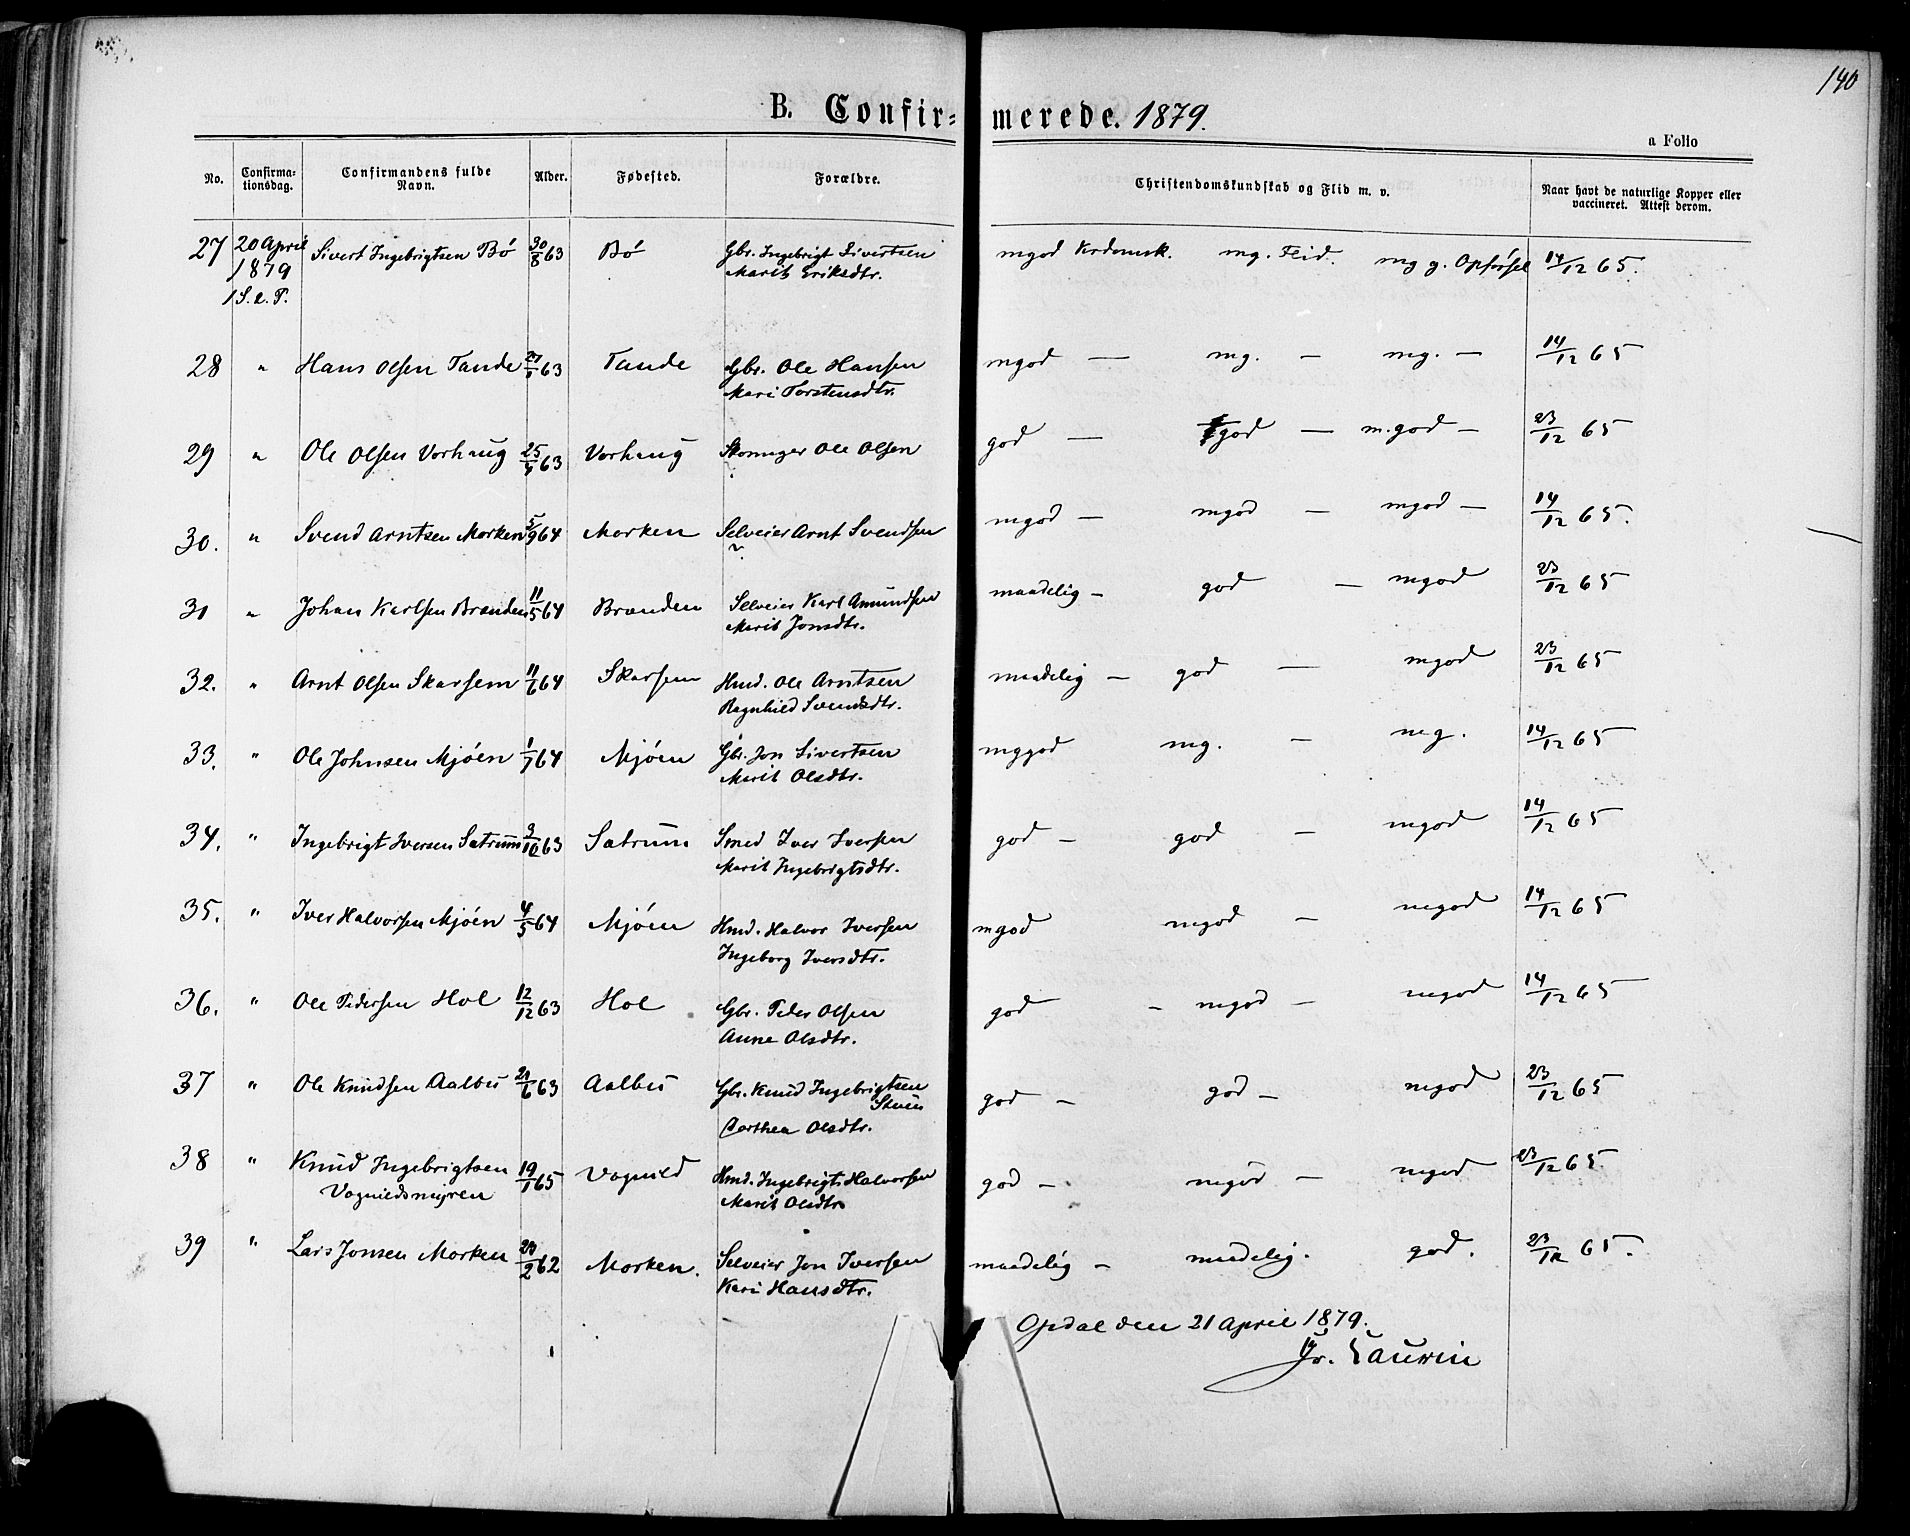 140
B. Confir= merede. 1879.
a Folio
No. Confirma-tionsdag. Confirmandens fulde Navn. Alder. Fødested. Forældre. Christendomskundskab og Flid m. v. Naar havt de naturlige Kopper eller vaccineret. Attest derom.
27 20 April Sivert Ingebrigtsen Bö 30/8 63 Bö Gbr. Ingebrigt Sivertsen mgod Krdomsk. mg. Flid. mg g. Opförsel 14/12 65.
1879 Marit Eriksdtr.
1 S. e. P.
28 " Hans Olsen Tande 63 Tande Gbr. Ole Hansen mgod — mg. — mg. — 14/12 65
Mari Torstensdtr.
29 " Ole Olsen Vorhaug 25/ 63 Vorhaug Ole Olsen god — god — m.god — 23/12 65
30. " Svend Arntsen Morken 5/9 64 Morken Selveier Arnt Svendsen mgod — mgod — mgod — 14/12 65.
31 " Johan Karlsen Brænden 11/5 64 Brænden Selveier Karl Amundsen maadelig — god — mgod 23/12 65
Marit Jonsdtr.
32. " Arnt Olsen Skarsem 11/6 64 Skarsem Hmd. Ole Arntsen maadelig — god — mgod 23/12 65
Ragnhild Svendsdtr.
33. " Ole Johnsen Mjöen 1/7 64 Mjöen Gbr. Jon Sivertsen mggod mg. — mg. 14/12 65
Marit Olsdtr.
34. " Ingebrigt Iversen Satrum 3/10 63 Satrum Smed Iver Iversen god — god — mgod 14/12 65
Marit Ingebrigtsdtr.
35. " Iver Halvorsen Mjöen 4/5 64 Mjöen Hmd. Halvor Iversen mgod mgod — mgod 14/12 65
Ingeborg Iversdtr.
36. " Ole Pedersen Hol 12/12 63 Hol Gbr. Peder Olsen god — mgod — mgod 14/12 65
Anne Olsdtr.
37 " Ole Knudsen Aalbu 21/6 63 Aalbu Gbr. Knud Ingebrigtsen god — god — mgod 23/12 65
Dorthea Olsdtr.
38 " Knud Ingebrigtsen 19/1 65 Vognild Hmd. Ingebrigt Halvorsen god — mgod — mgod 23/12 65.
Vognildsmyren Marit Olsdtr
39 " Lars Jonsen Morken 23/2 62 Morken. Selveier Jon Iversen maadelig — maadelig. god. 23/12 65.
Kari Hansdtr.
Opdal den 21 April 1879.
Jr. Laurin